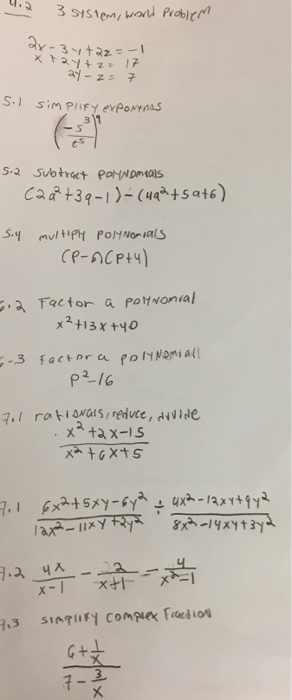 4.2 3 system, world Problem
2x - 3y + 2z = -1
x + 2y + z = 17
2y - z = 7
5.1 simplify exponents
(-s^3/t^5)^9
5.2 subtract polynomials
(2a^2 + 3a - 1) - (4a^2 + 5a + 6)
5.4 multiply polynomials
(p - 1)(p + 4)
6.2 Factor a polynomial
x^2 + 13x + 40
6-3 factor a polynomial
p^2 - 16
7.1 rationals, reduce, divide
x^2 + 2x - 15 / x^2 + 6x + 5
7.1 6x^2 + 5xy - 6y^2 / 12x^2 - 11xy + 2y^2 ÷ 4x^2 - 12xy + 9y^2 / 8x^2 - 14xy + 3y^2
7.2 4x / x - 1 - 2 / x + 1 = 4 / x^2 - 1
7.3 simplify complex fraction
6 + 1/x / 7 - 3/x